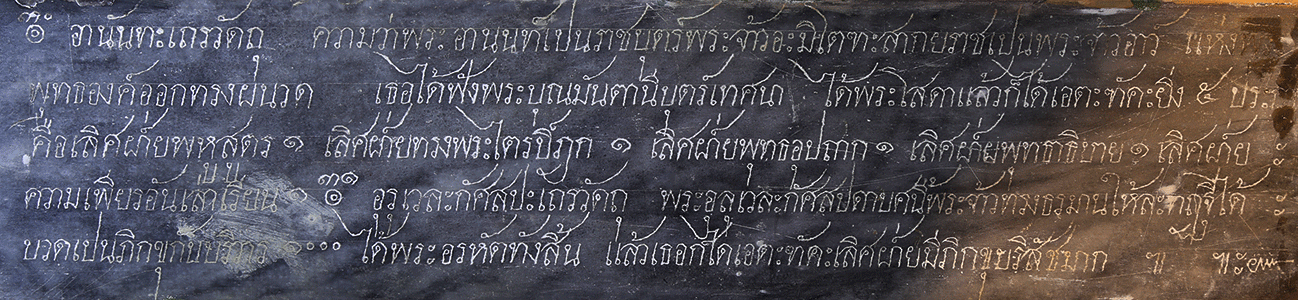 ๏ อานันทะเถรวัตถุ ความว่าพระอานนท์เป็นราชบุตร์พระเจ้าอะมิโตทะสากยราชเป็นพระเจ้าอาว์ แห่ง
พุทธองค์ออกทรงผนวด เธอได้ฟังพระปุณมันตานีบุตร์เทศนา ได้พระโสดาแล้วก็ได้เอตะทัคะยิ่ง ๕ ประ
คือเลิศฝ่ายพหูสูตร ๑ เลิศฝ่ายทรงพระไตรปิฎก ๑ เลิศฝ่ายพุทธอุปถาก ๑ เลิศฝ่ายพุทธาธิบาย ๑ เลิศฝ่าย
ความเพียรอันเล่าเรียน ๑ ๏ อุรุเวละกัศสปะเถรวัตถุ พระอุลุเวละกัศสปดาบศนี้พระเจ้าทรงธรมานให้ละทฤฐิได้
บวดเป็นภิกขุกับบริวาร ๑๐๐๐ ได้พระอรหัตทังสิ้น แล้วเธอก็ได้เอตะทัคะเลิศฝ่ายมีภิกขุบริสัชมาก ฯ